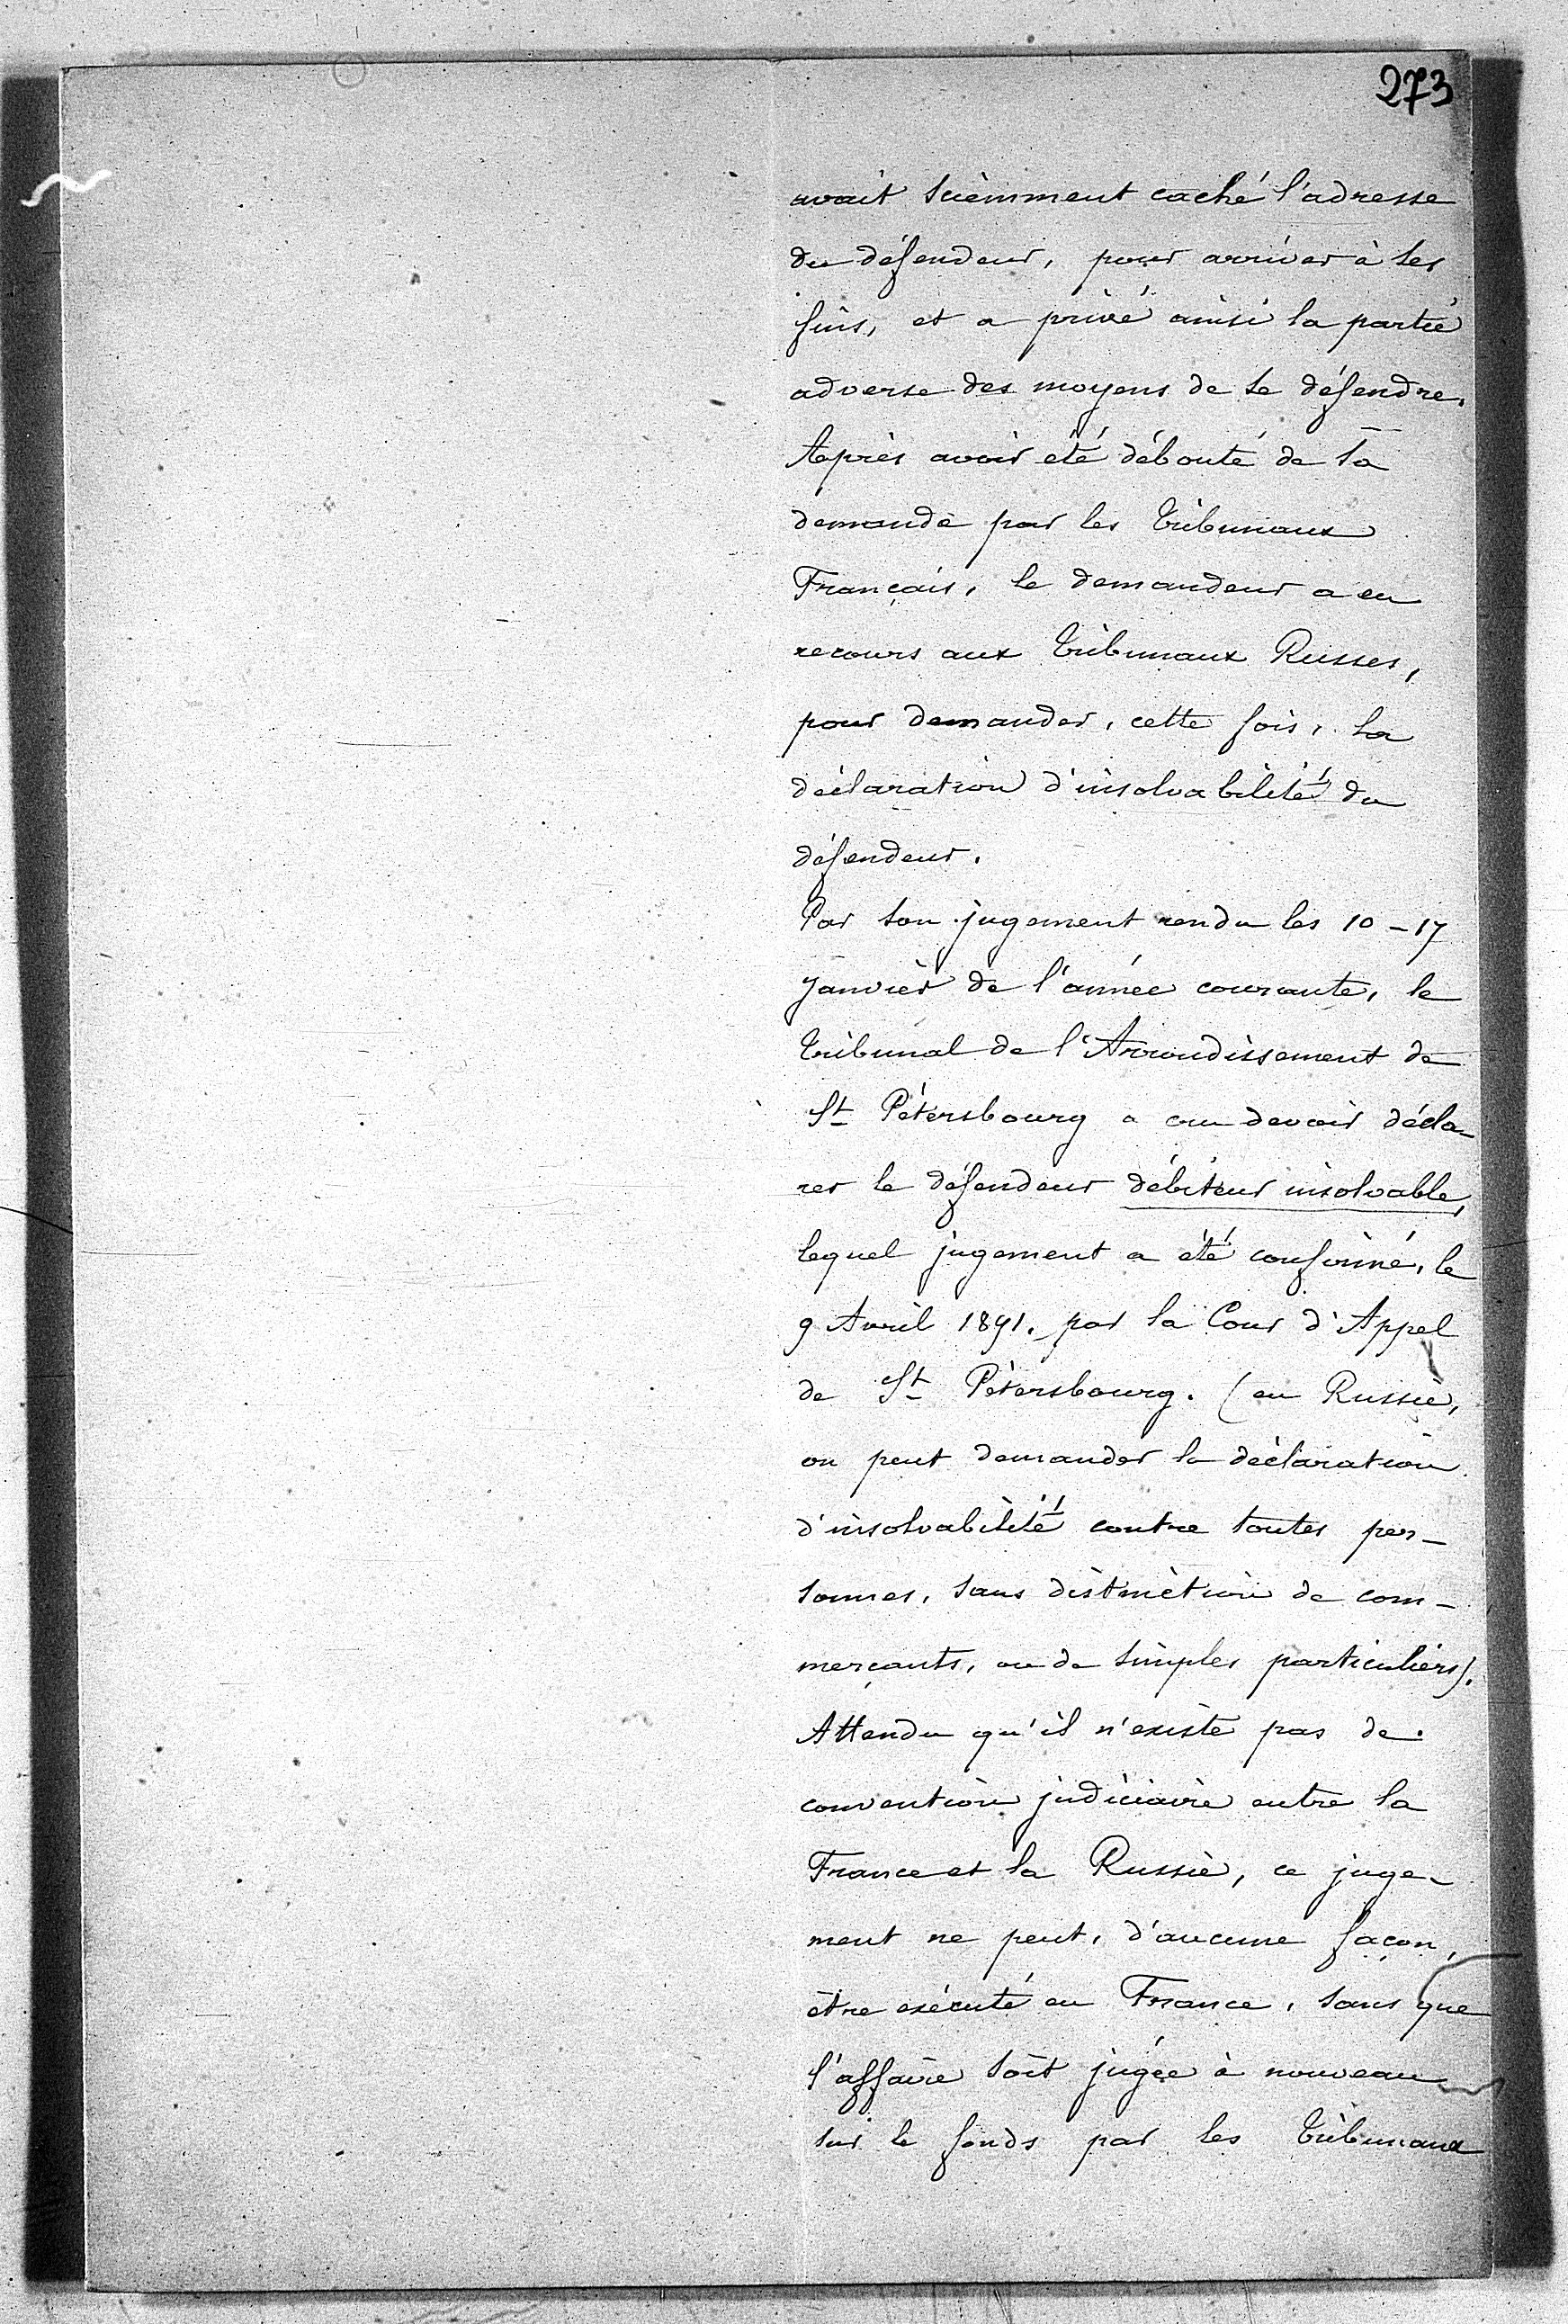 273
avait sciemment caché l'adresse
du défendeur, pour arriver à ses
fins, et a privé ainsi la partie
adverse des moyens de se défendre.
Après avoir été débouté de sa
demande par les Tribunaux
Français, le demandeur a eu
recours aux Tribunaux Russes,
pour demander, cette fois, la
déclaration d'insolvabilité du
défendeur.
Par son jugement rendu les 10-17
Janvier de l'année courante, le
Tribunal de l'Arrondissement de
St Pétersbourg a cru devoir décla-
rer le défendeur débiteur insolvable,
lequel jugement a été confirmé, le
9 Avril 1891, par la Cour d'Appel
de St Pétersbourg. (en Russie,
on peut demander la déclaration
d'insolvabilité contre toutes per-
sonnes, sans distinction de com-
merçants, ou de simples particuliers).
Attendu qu'il n'existe pas de
convention judiciaire entre la
France et la Russie, ce juge-
ment ne peut, d'aucune façon,
être exécuté en France, sans que
l'affaire soit jugée à nouveau
sur le fonds par les Tribunaux